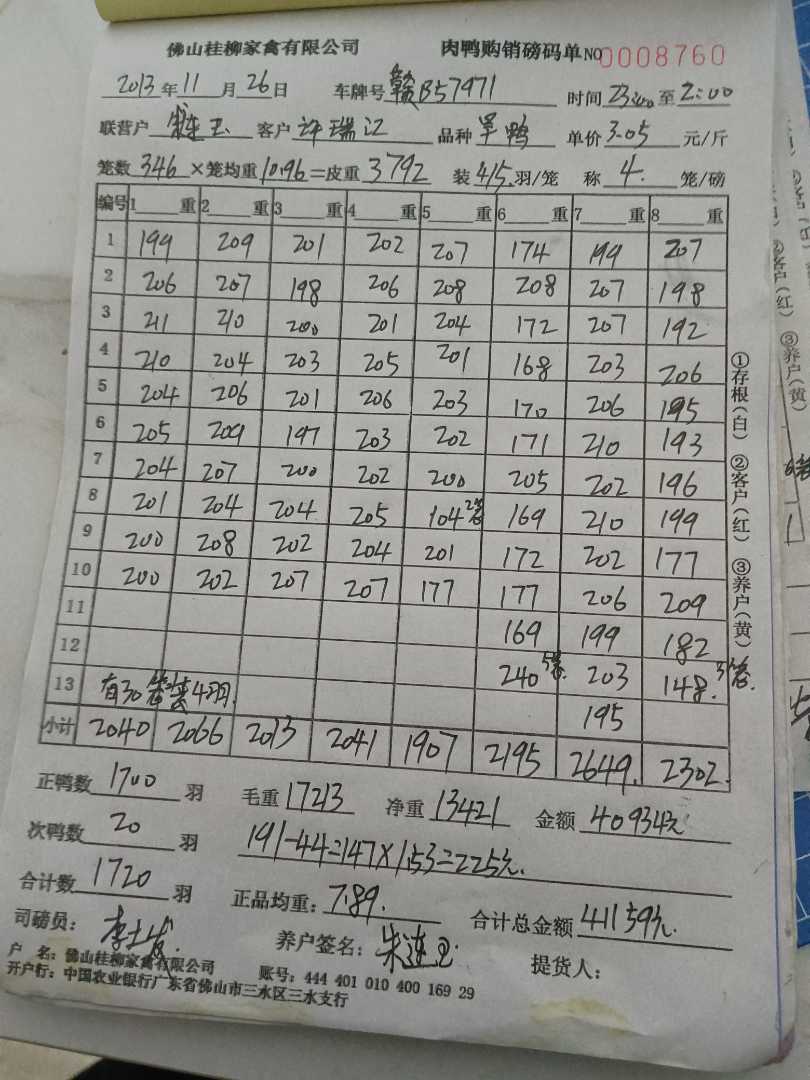 佛山桂柳家禽有限公司 肉鸭购销磅码单 NO 0008760
2013年11月26日 车牌号 赣B57971 时间 23:00 至 2:00
联营户 朱连玉 客户 许瑞江 品种 羊鸭 单价 3.05 元/斤
笼数 346 ×笼均重 10.96 =皮重 3792 装 4/5 羽/笼 称 4. 笼/磅
编号 1 重 2 重 3 重 4 重 5 重 6 重 7 重 8 重
1 199 209 201 202 207 174 199 207
2 206 207 198 206 208 208 207 198
3 211 210 200 201 204 172 207 192
4 210 204 203 205 201 168 203 206
5 204 206 201 206 203 170 206 195
6 205 209 197 203 202 171 210 193
7 204 207 200 202 200 205 202 196
8 201 204 204 205 104 2笼 169 210 199
9 200 208 202 204 201 172 202 177
10 200 202 207 207 177 177 206 209
11 169 199 182
12 240 5笼. 203 148. 3笼.
13 有30笼装4羽. 195
小计 2040 2066 2013 2041 1907 2195 2649. 2302.
正鸭数 1700 羽 毛重 17213 净重 13421 金额 40934元
次鸭数 20 羽 191-44=147×1.53=225元.
合计数 1720 羽 正品均重: 7.89. 合计总金额 41159元.
司磅员: 养户签名: 朱连玉 提货人:
户 名: 佛山桂柳家禽有限公司 账号: 444 401 010 400 169 29
开户行: 中国农业银行广东省佛山市三水区三水支行
①存根(白) ②客户(红) ③养户(黄)
③养户(黄)